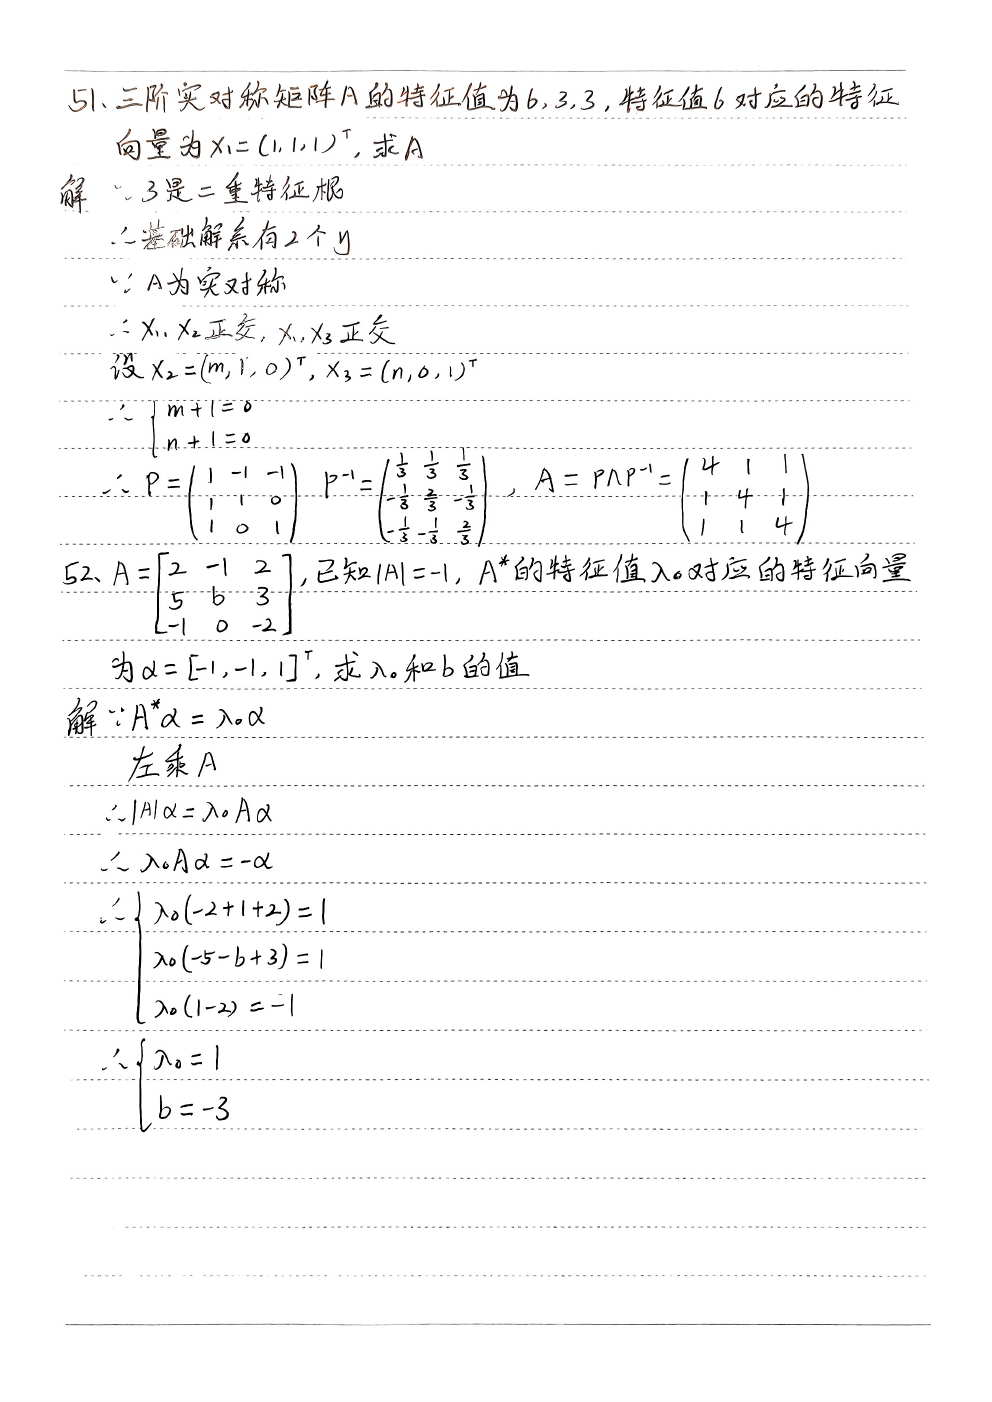 51、三阶实对称矩阵A的特征值为6,3,3,特征值6对应的特征
向量为X₁=(1,1,1)ᵀ,求A
解 ∵3是二重特征根
∴基础解系有2个y
∵A为实对称
∴X₁,X₂正交,X₁,X₃正交
设X₂=(m,1,0)ᵀ,X₃=(n,0,1)ᵀ
∴{m+1=0
n+1=0
∴P=(1 -1 -1; 1 1 0; 1 0 1) P⁻¹=(1/3 1/3 1/3; -1/3 2/3 -1/3; -1/3 -1/3 2/3), A=PΛP⁻¹=(4 1 1; 1 4 1; 1 1 4)
52、A=[2 -1 2; 5 b 3; -1 0 -2],已知|A|=-1,A*的特征值λ₀对应的特征向量
为α=[-1,-1,1]ᵀ,求λ₀和b的值
解∵A*α=λ₀α
左乘A
∴|A|α=λ₀Aα
∴λ₀Aα=-α
∴{λ₀(-2+1+2)=1
λ₀(-5-b+3)=1
λ₀(1-2)=-1
∴{λ₀=1
b=-3